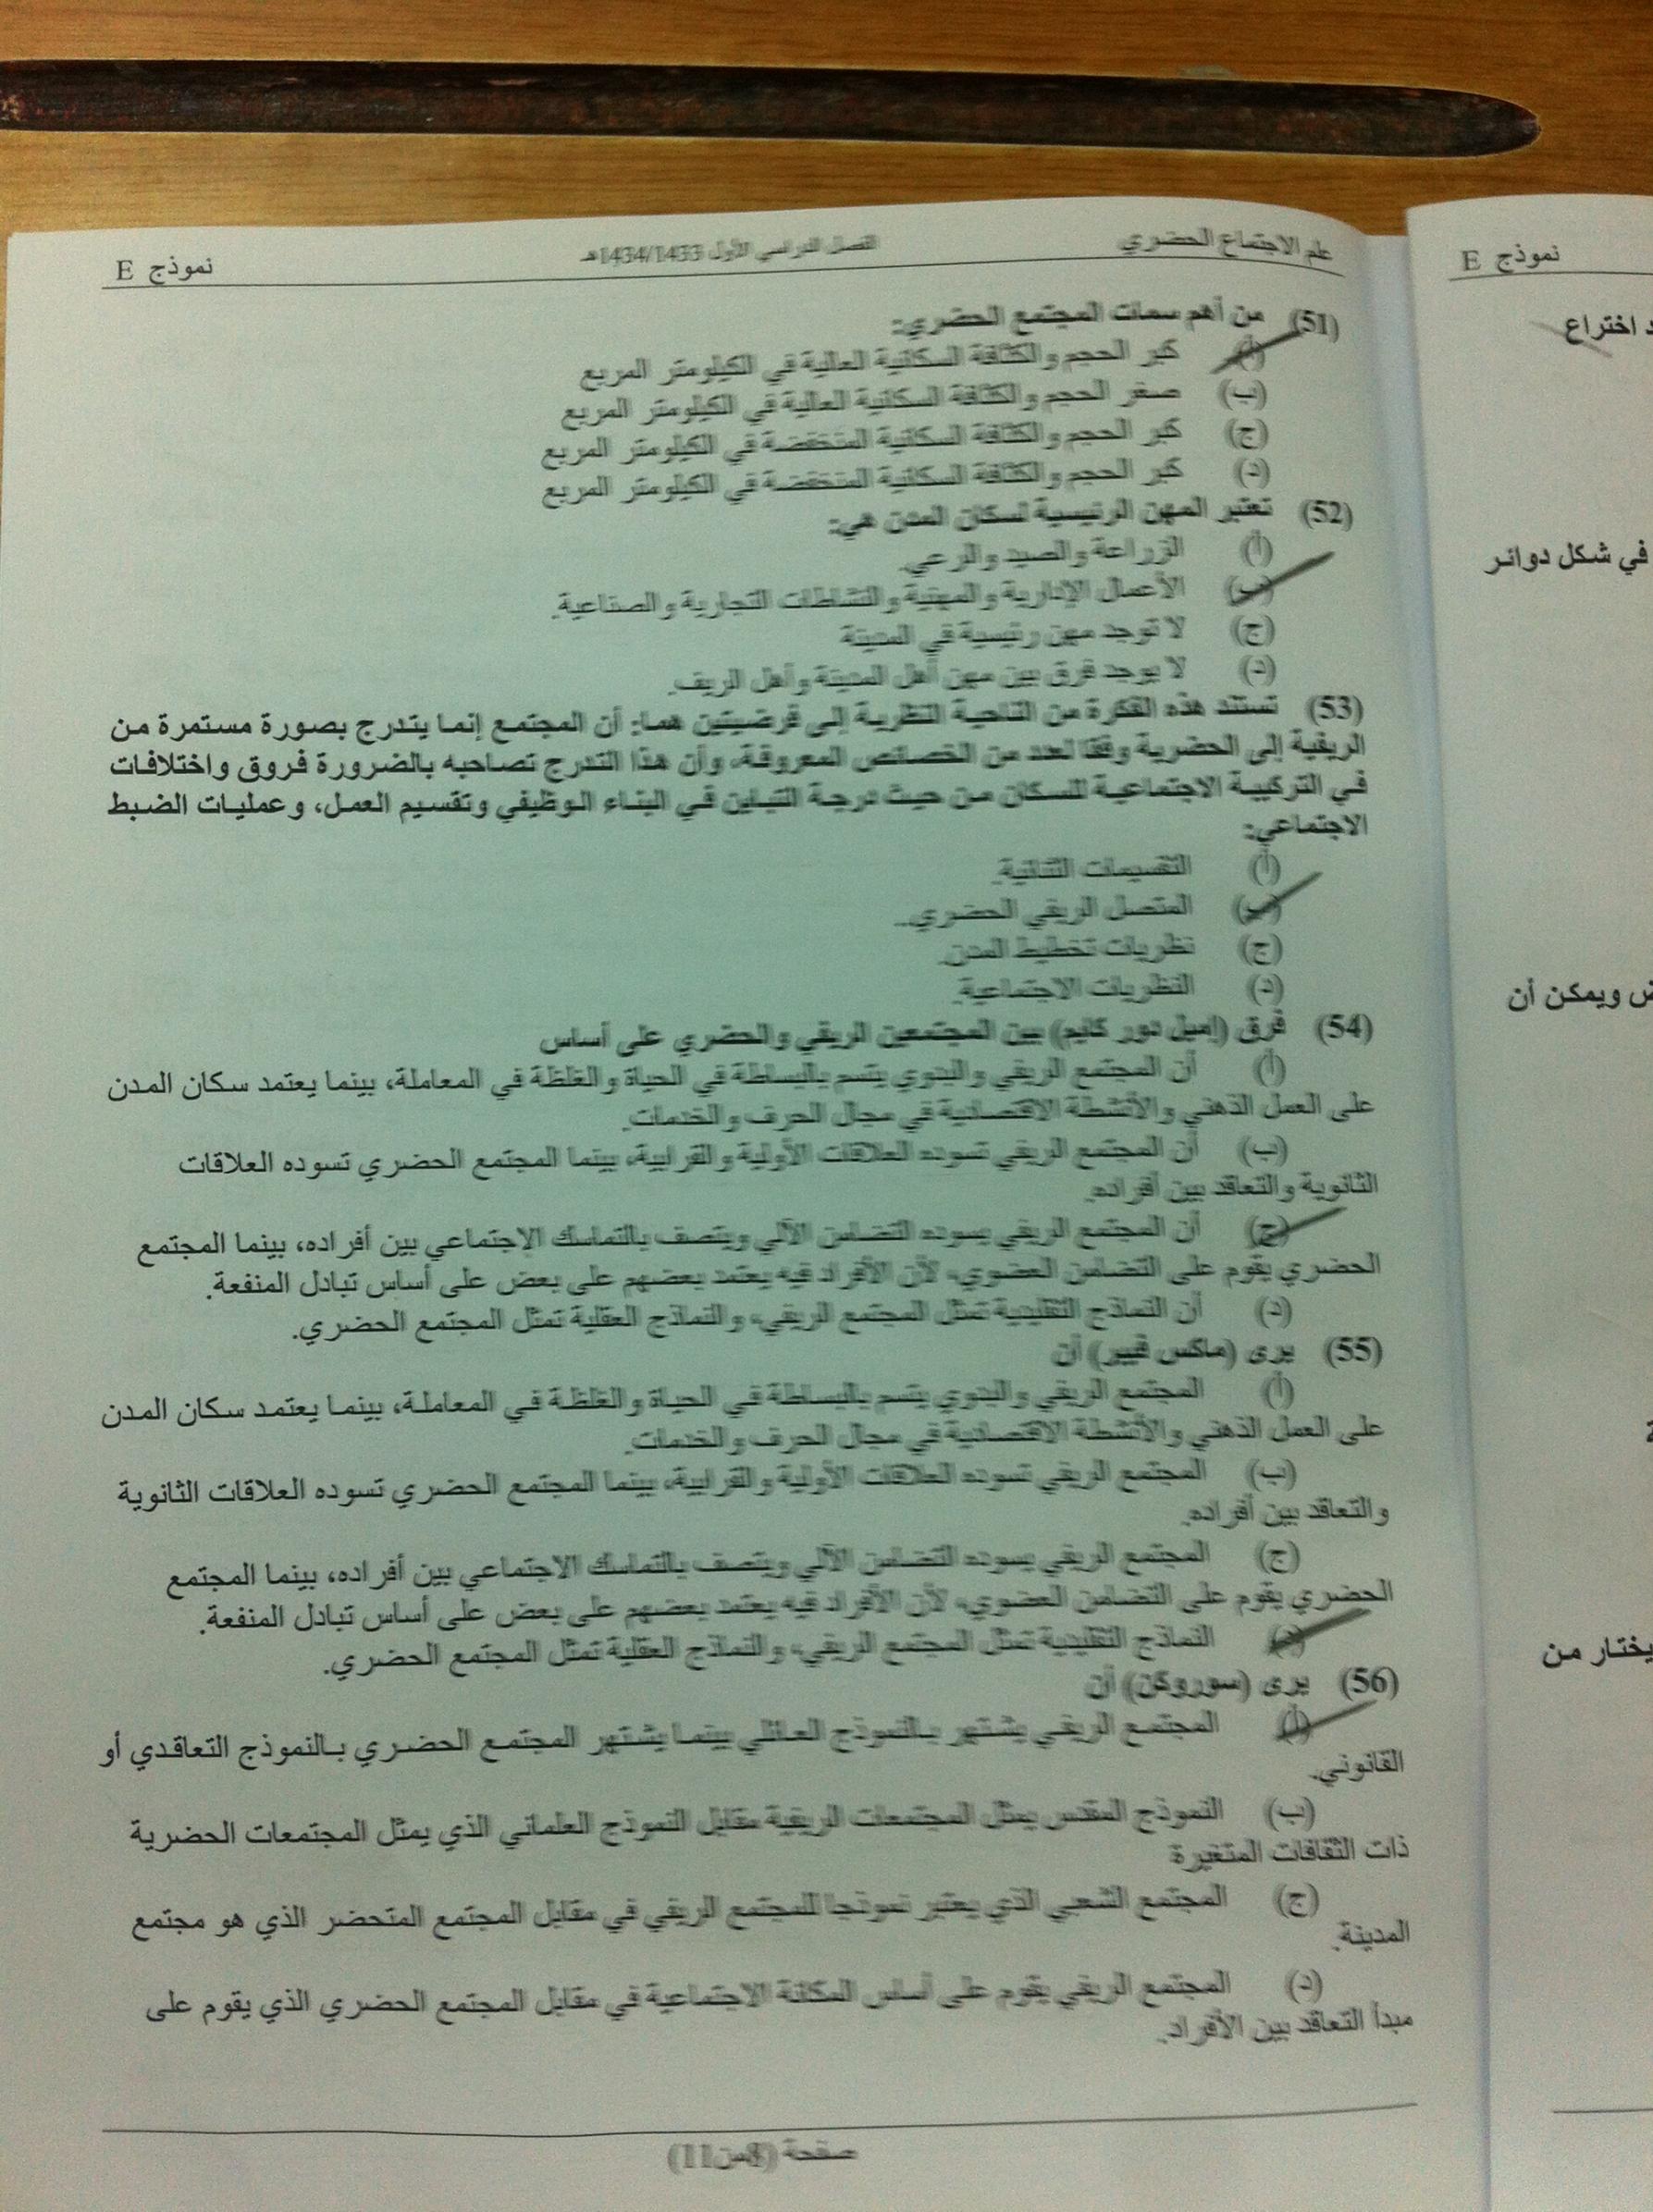 علم الاجتماع الحضري
الفصل الدراسي الأول 1434/1433هـ
نموذج E
(51) من أهم سمات المجتمع الحضري:
(أ) كبر الحجم والكثافة السكانية العالية في الكيلومتر المربع
(ب) صغر الحجم والكثافة السكانية العالية في الكيلومتر المربع
(ج) كبر الحجم والكثافة السكانية المنخفضة في الكيلومتر المربع
(د) كبر الحجم والكثافة السكانية المنخفضة في الكيلومتر المربع
(52) تعتبر المهن الرئيسية لسكان المدن هي:
(أ) الزراعة والصيد والرعي.
(ب) الأعمال الإدارية والمهنية والنشاطات التجارية والصناعية.
(ج) لا توجد مهن رئيسية في المدينة
(د) لا يوجد فرق بين مهن أهل المدينة وأهل الريف.
(53) تستند هذه الفكرة من الناحية النظرية إلى فرضيتين هما: أن المجتمع إنما يتدرج بصورة مستمرة من
الريفية إلى الحضرية وفقا لعدد من الخصائص المعروفة، وأن هذا التدرج تصاحبه بالضرورة فروق واختلافات
في التركيبة الاجتماعية للسكان من حيث درجة التباين في البناء الوظيفي وتقسيم العمل، وعمليات الضبط
الاجتماعي:
(أ) التقسيمات الثنائية.
(ب) المتصل الريفي الحضري.
(ج) نظريات تخطيط المدن.
(د) النظريات الاجتماعية.
(54) فرق (إميل دور كايم) بين المجتمعين الريفي والحضري على أساس
(أ) أن المجتمع الريفي والبدوي يتسم بالبساطة في الحياة والغلظة في المعاملة، بينما يعتمد سكان المدن
على العمل الذهني والأنشطة الاقتصادية في مجال الحرف والخدمات.
(ب) أن المجتمع الريفي تسوده العلاقات الأولية والقرابية، بينما المجتمع الحضري تسوده العلاقات
الثانوية والتعاقد بين أفراده.
(ج) أن المجتمع الريفي يسوده التضامن الآلي ويتصف بالتماسك الاجتماعي بين أفراده، بينما المجتمع
الحضري يقوم على التضامن العضوي، لأن الأفراد فيه يعتمد بعضهم على بعض على أساس تبادل المنفعة.
(د) أن النماذج التقليدية تمثل المجتمع الريفي، والنماذج العقلية تمثل المجتمع الحضري.
(55) يرى (ماكس فيبر) أن
(أ) المجتمع الريفي والبدوي يتسم بالبساطة في الحياة والغلظة في المعاملة، بينما يعتمد سكان المدن
على العمل الذهني والأنشطة الاقتصادية في مجال الحرف والخدمات.
(ب) المجتمع الريفي تسوده العلاقات الأولية والقرابية، بينما المجتمع الحضري تسوده العلاقات الثانوية
والتعاقد بين أفراده.
(ج) المجتمع الريفي يسوده التضامن الآلي ويتصف بالتماسك الاجتماعي بين أفراده، بينما المجتمع
الحضري يقوم على التضامن العضوي، لأن الأفراد فيه يعتمد بعضهم على بعض على أساس تبادل المنفعة.
(د) النماذج التقليدية تمثل المجتمع الريفي، والنماذج العقلية تمثل المجتمع الحضري.
(56) يرى (سوروكن) أن
(أ) المجتمع الريفي يشتهر بالنموذج العائلي بينما يشتهر المجتمع الحضري بالنموذج التعاقدي أو
القانوني.
(ب) النموذج المقدس يمثل المجتمعات الريفية مقابل النموذج العلماني الذي يمثل المجتمعات الحضرية
ذات الثقافات المتغيرة
(ج) المجتمع الشعبي الذي يعتبر نموذجا للمجتمع الريفي في مقابل المجتمع المتحضر الذي هو مجتمع
المدينة.
(د) المجتمع الريفي يقوم على أساس المكانة الاجتماعية في مقابل المجتمع الحضري الذي يقوم على
مبدأ التعاقد بين الأفراد.
صفحة (8من11)
نموذج E
اختراع
في شكل دوائر
ويمكن أن
يختار من